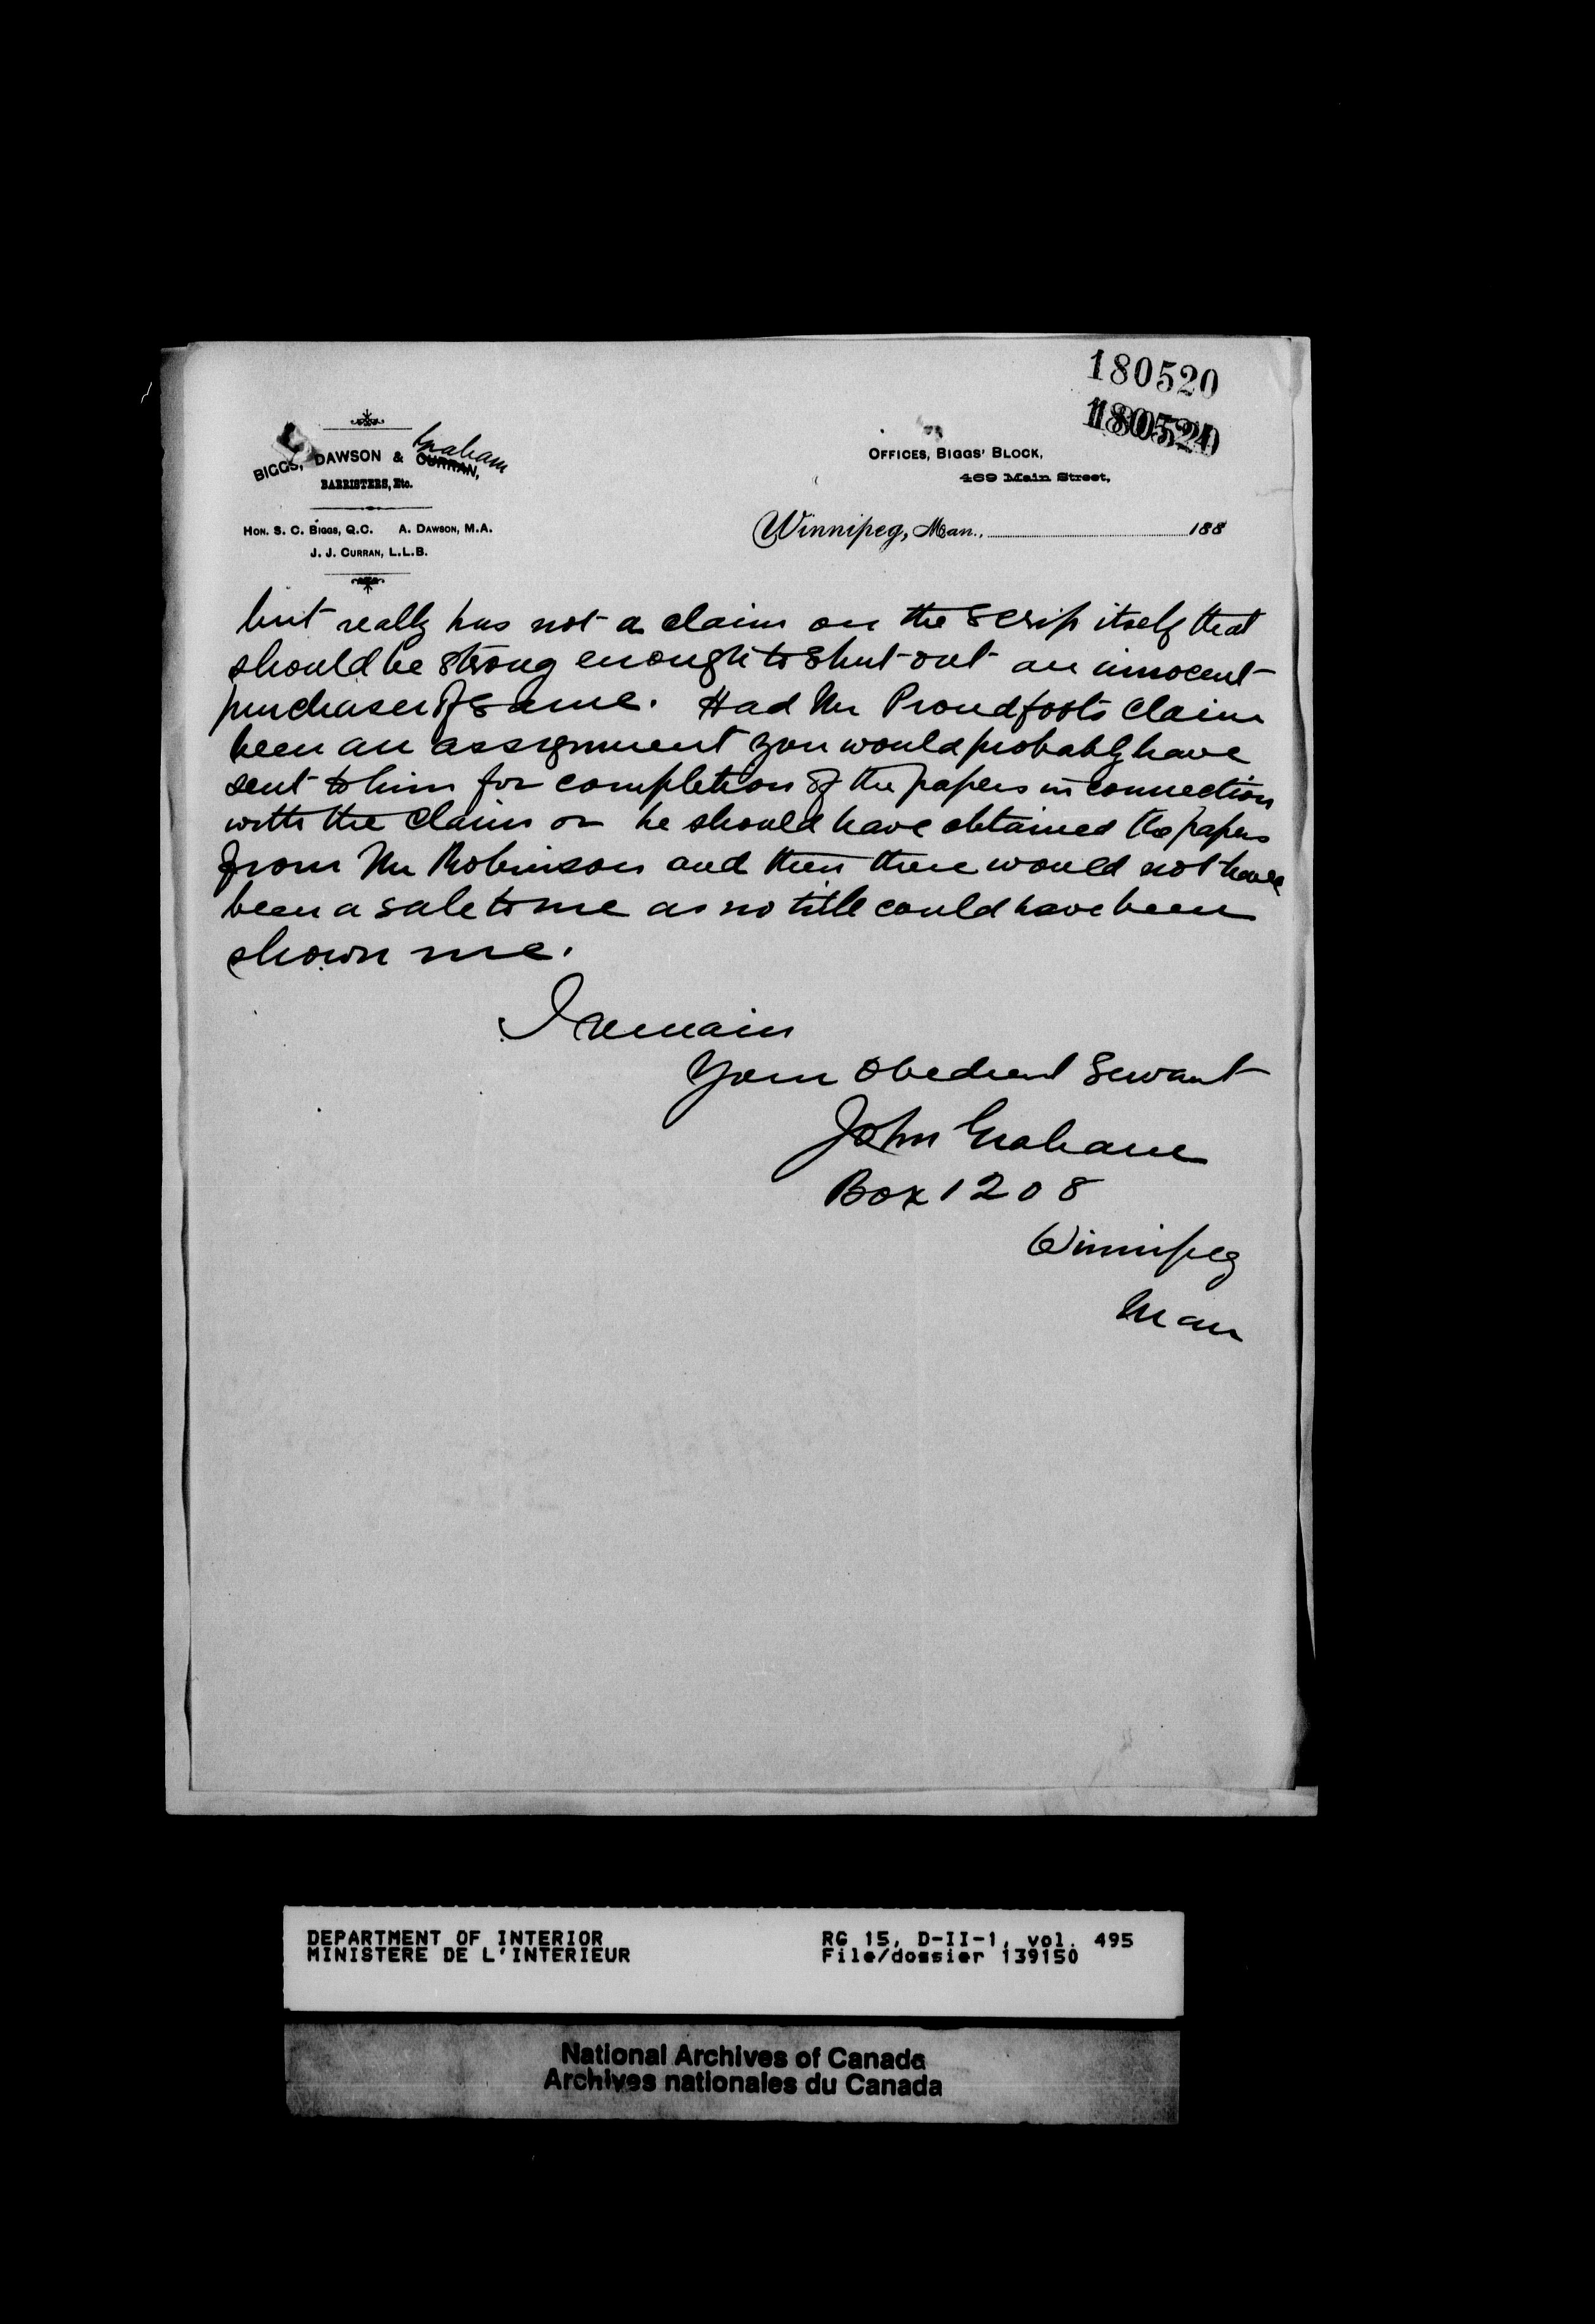 180520
180520
BIGGS, DAWSON & CURRAN, Graham
BARRISTERS, Etc.
HON. S. C. BIGGS, Q.C. A. DAWSON, M.A.
J. J. CURRAN, L.L.B.
OFFICES, BIGGS' BLOCK,
469 Main Street,
Winnipeg, Man., 188
but really has not a claim on the scrip itself that
should be strong enough to shut out an innocent
purchaser of same. Had Mr Proudfoots claim
been an assignment you would probably have
sent to him for completion of the papers in connection
with the claim or he should have obtained the papers
from Mr Robinson and then there would not have
been a sale to me as no title could have been
shown me.
I remain
Your Obedient Servant
John Graham
Box 1208
Winnipeg
Man
DEPARTMENT OF INTERIOR
MINISTERE DE L'INTERIEUR
RG 15, D-II-1, vol. 495
File/dossier 139150
National Archives of Canada
Archives nationales du Canada